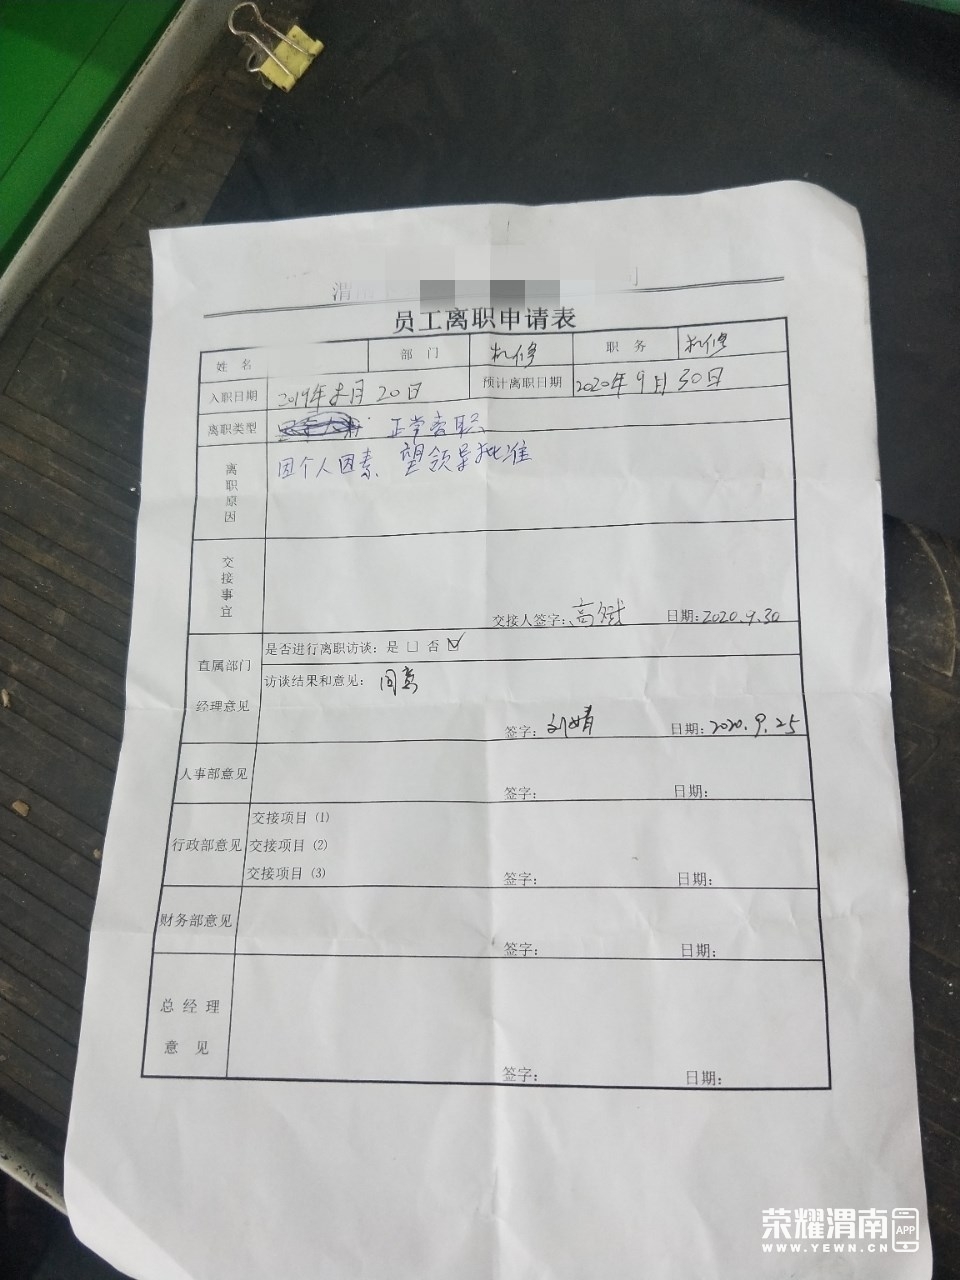 渭
员工离职申请表
姓 名 部 门 机修 职 务 机修
入职日期 2019年 月20日 预计离职日期 2020年9月30日
离职类型 正常离职
离职原因 因个人因素、望领导批准
交接事宜
交接人签字: 高 日期:2020.9.30
直属部门经理意见 是否进行离职访谈:是 □ 否 ☑
访谈结果和意见: 同意
签字: 刘婧 日期:2020.9.25
人事部意见
签字: 日期:
行政部意见 交接项目 (1)
交接项目 (2)
交接项目 (3)
签字: 日期:
财务部意见
签字: 日期:
总经理意见
签字: 日期:
荣耀渭南 APP
WWW.YEWN.CN